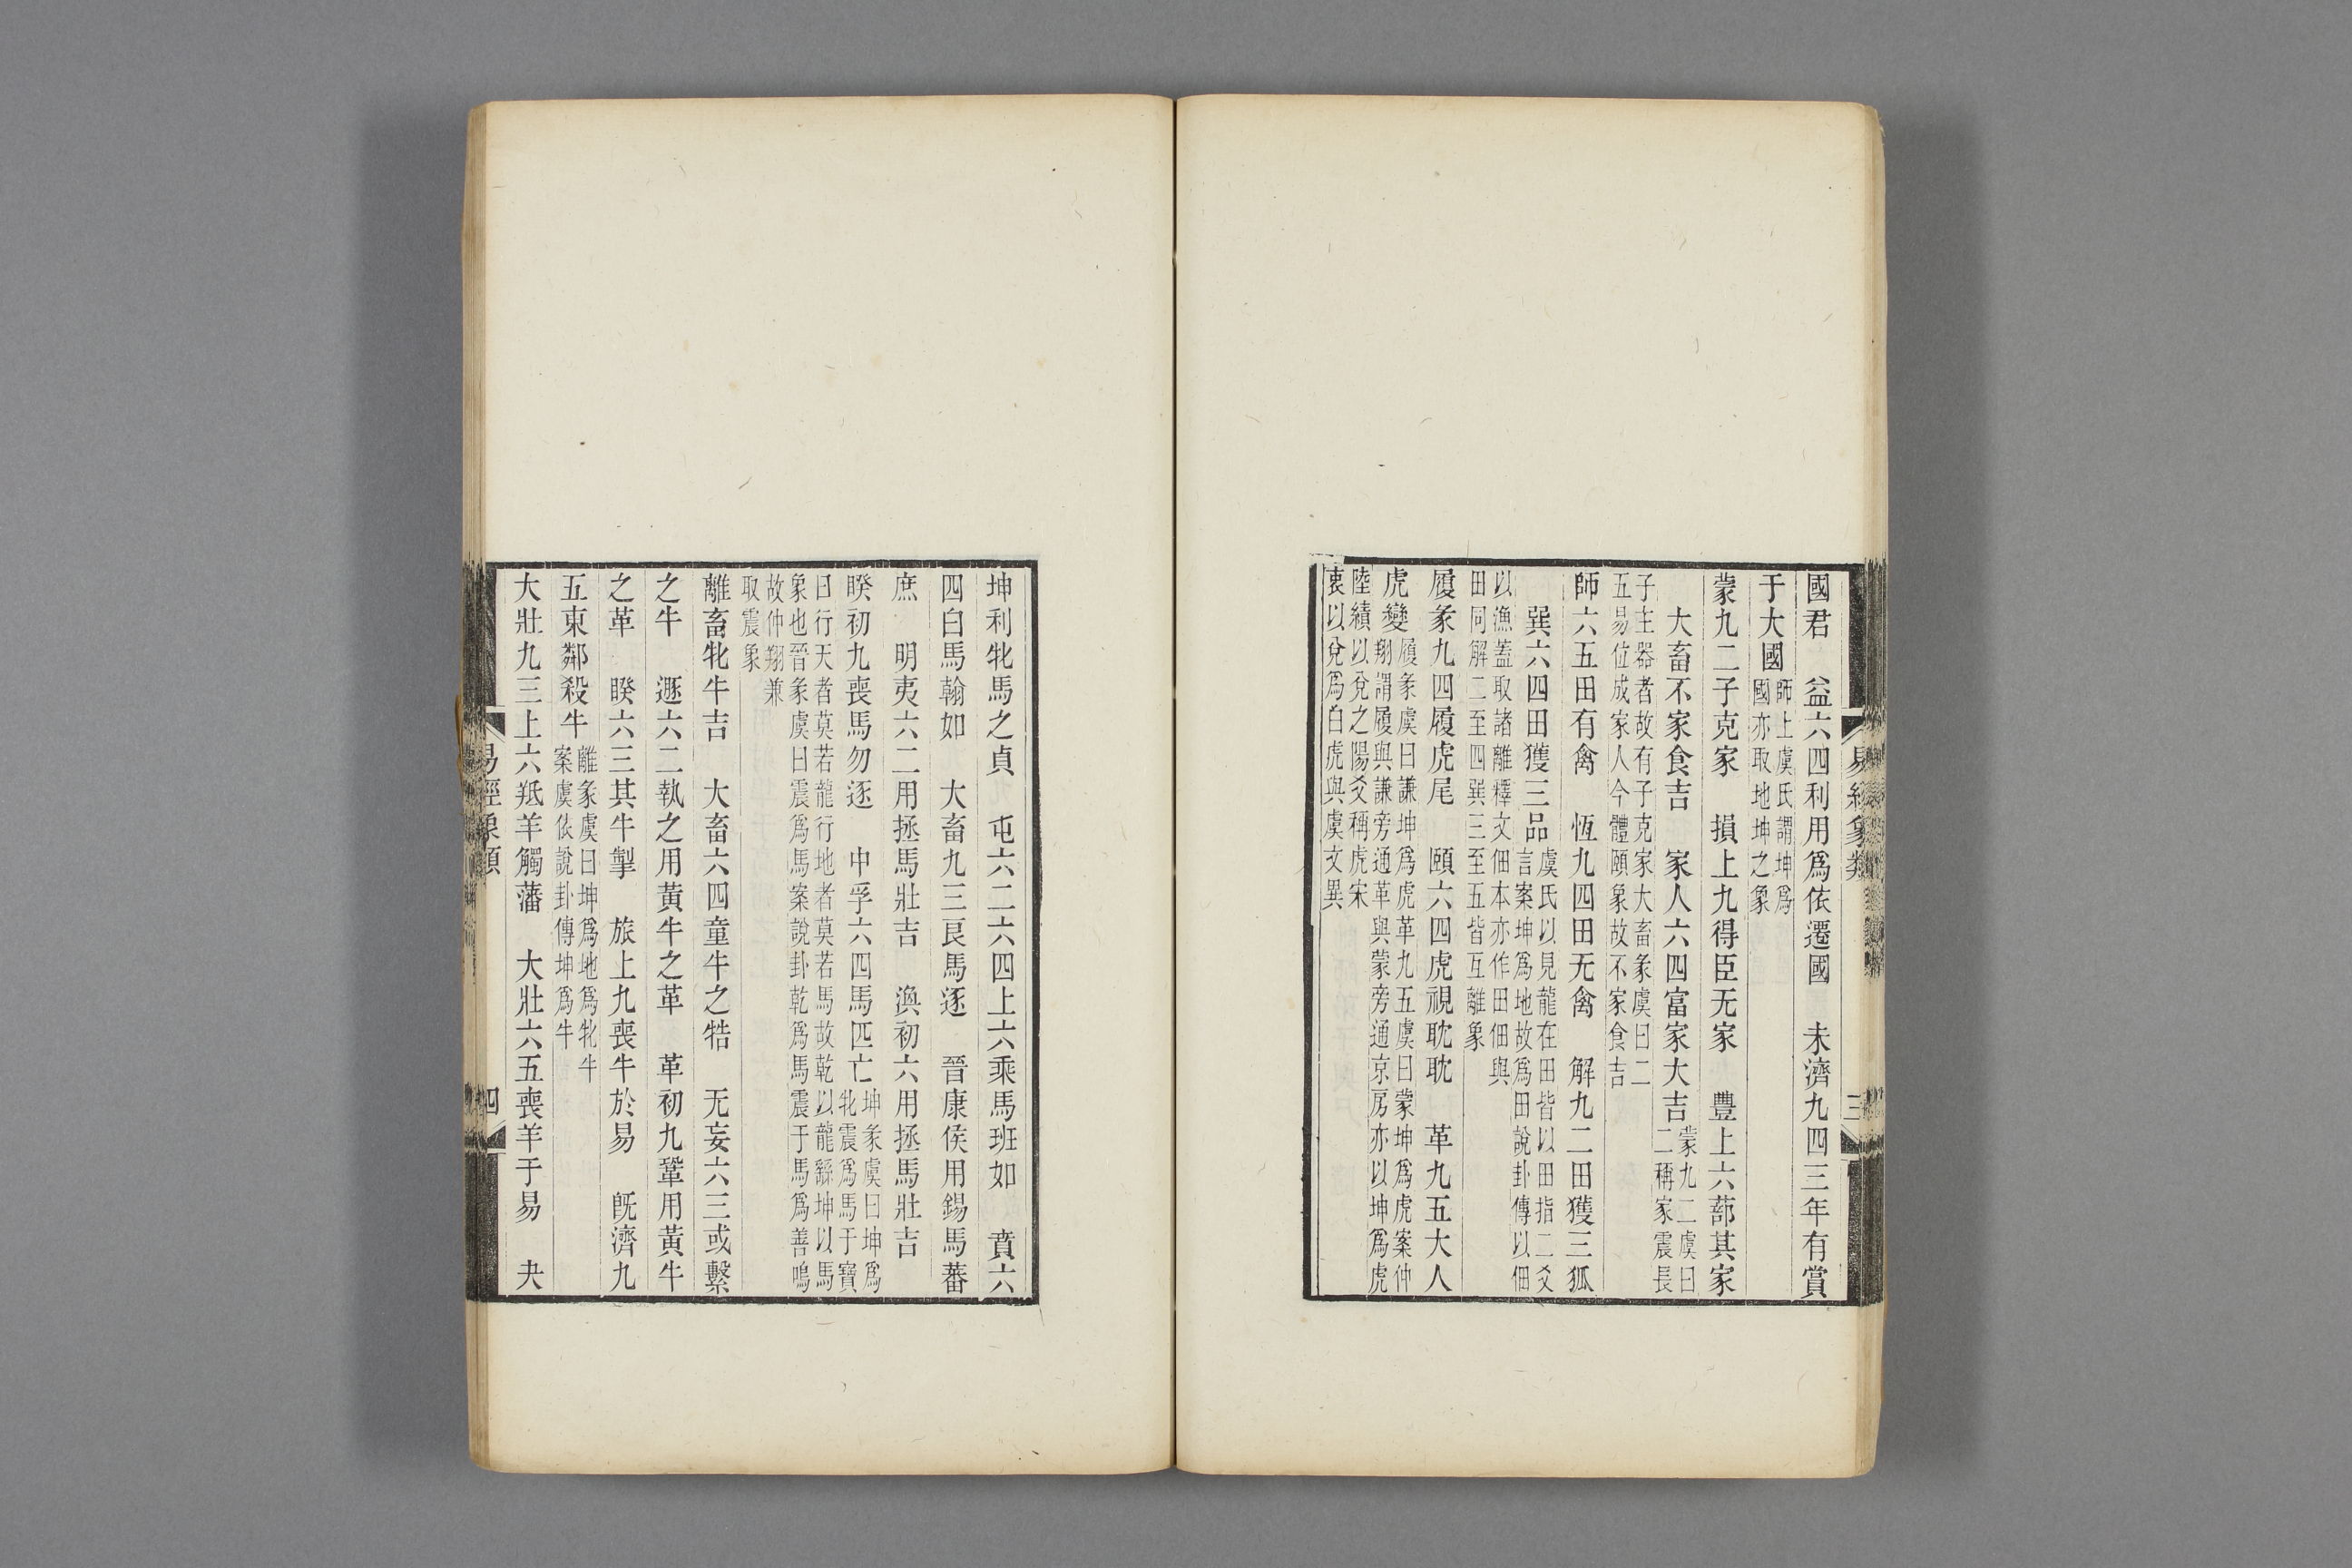 易經象類
三
國君　益六四利用爲依遷國　未濟九四三年有賞
于大國
師上虞氏謂坤爲
國亦取地坤之象
蒙九二子克家　損上九得臣无家　豐上六蔀其家
大畜不家食吉　家人六四富家大吉
蒙九二虞曰
二稱家震長
子主器者故有子克家大畜彖虞曰二
五易位成家人今體頤象故不家食吉
師六五田有禽　恆九四田无禽　解九二田獲三狐
巽六四田獲三品
虞氏以見龍在田皆以田指二爻
言案坤爲地故爲田說卦傳以佃
以漁蓋取諸離釋文佃本亦作田佃與
田同解二至四巽三至五皆互離象
履彖九四履虎尾　頤六四虎視耽耽　革九五大人
虎變
履彖虞曰謙坤爲虎革九五虞曰蒙坤爲虎案仲
翔謂履與謙旁通革與蒙旁通京房亦以坤爲虎
陸績以兌之陽爻稱虎宋
衷以兌爲白虎與虞文異
坤利牝馬之貞　屯六二六四上六乘馬班如　賁六
四白馬翰如　大畜九三良馬逐　晉康侯用錫馬蕃
庶　明夷六二用拯馬壯吉　渙初六用拯馬壯吉
睽初九喪馬勿逐　中孚六四馬匹亡
坤彖虞曰坤爲
牝震爲馬于寶
曰行天者莫若龍行地者莫若馬故乾以龍繇坤以馬
象也晉彖虞曰震爲馬案說卦乾爲馬震于馬爲善鳴
故仲翔兼
取震象
離畜牝牛吉　大畜六四童牛之牿　无妄六三或繫
之牛　遯六二執之用黃牛之革　革初九鞏用黃牛
之革　睽六三其牛掣　旅上九喪牛於易　旣濟九
五東鄰殺牛
離彖虞曰坤爲地爲牝牛
案虞依說卦傳坤爲牛
大壯九三上六羝羊觸藩　大壯六五喪羊于易　夬
易經象類
四